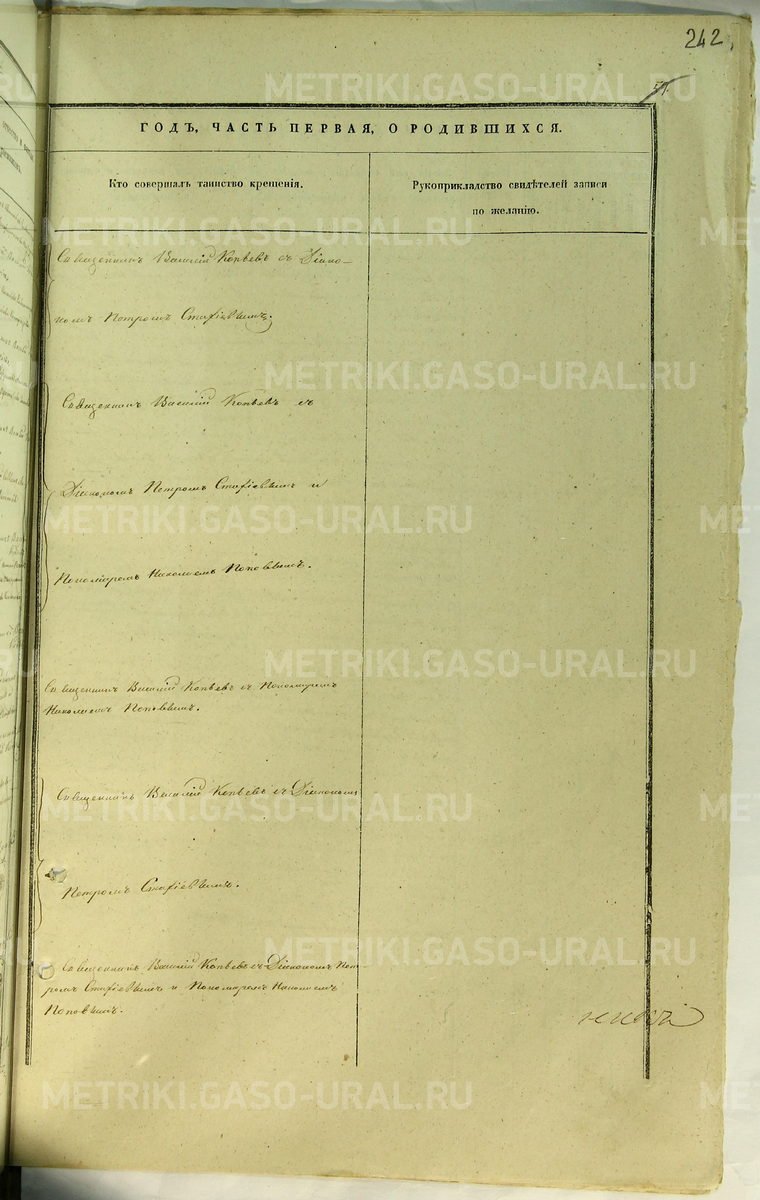 242
ГОДЪ, ЧАСТЬ ПЕРВАЯ, О РОДИВШИХСЯ.
Кто совершалъ таинство крещенія.
Рукоприкладство свидѣтелей записи
по желанію.
Священникъ Василій Копьевъ съ Діако-
номъ Петромъ Стафіевымъ.
Священникъ Василій Копьевъ съ
Діакономъ Петромъ Стафіевымъ и
Пономаремъ Николаемъ Поповымъ.
Священникъ Василій Копьевъ съ Пономаремъ
Николаемъ Поповымъ.
Священникъ Василій Копьевъ съ Діакономъ
Петромъ Стафіевымъ.
Священникъ Василій Копьевъ съ Діакономъ Пет-
ромъ Стафіевымъ и Пономаремъ Николаемъ
Поповымъ.
METRIKI.GASO-URAL.RU